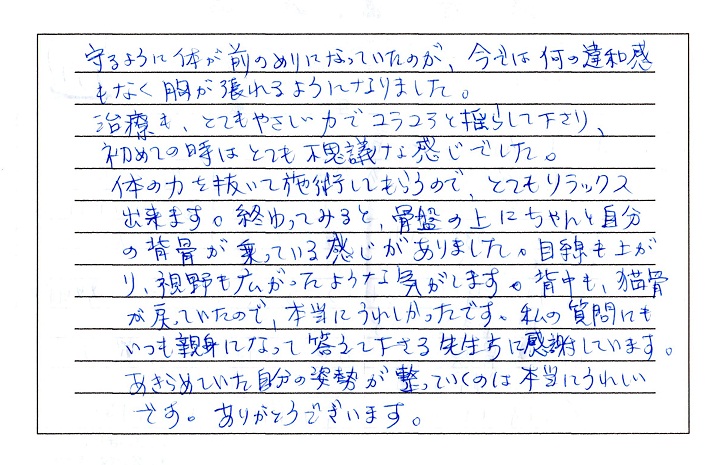 守るように体が前のめりになっていたのが、今では何の違和感
もなく胸が張れるようになりました。
治療も、とてもやさしい力でユラユラと揺らして下さり、
初めての時はとても不思議な感じでした。
体の力を抜いて施術してもらうので、とてもリラックス
出来ます。終わってみると、骨盤の上にちゃんと自分
の背骨が乗っている感じがありました。目線も上が
り、視野も広がったような気がします。背中も、猫背
が戻っていたので、本当にうれしかったです。私の質問にも
いつも親身になって答えて下さる先生方に感謝しています。
あきらめていた自分の姿勢が整っていくのは本当にうれしい
です。ありがとうございます。